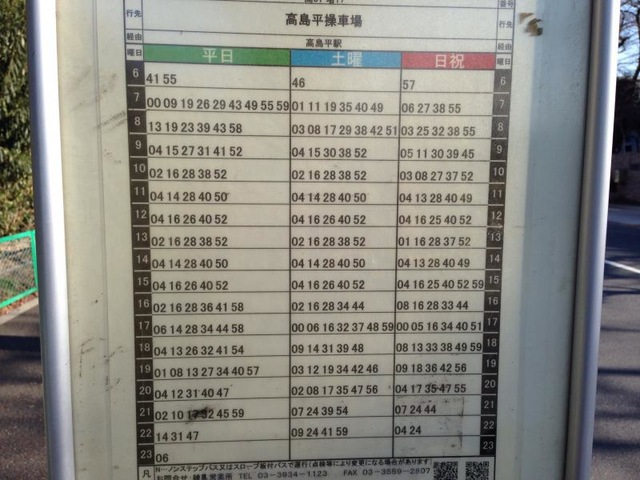 行先 高島平操車場 行先
経由 高島平駅 経由
曜日 平日 土曜 日祝 曜日
6 41 55 46 57 6
7 00 09 19 26 29 43 49 55 59 01 11 19 35 40 49 06 27 38 55 7
8 13 19 23 39 43 58 03 08 17 29 38 42 51 03 25 32 38 55 8
9 04 15 27 31 41 52 04 15 30 38 52 05 11 30 39 45 9
10 02 16 28 38 52 02 16 28 38 52 03 08 27 37 52 10
11 04 14 28 40 50 04 14 28 40 50 04 13 28 40 49 11
12 04 16 26 40 52 04 16 26 40 52 04 16 25 40 52 12
13 02 16 28 38 52 02 16 28 38 52 01 16 28 37 52 13
14 04 14 28 40 50 04 14 28 40 50 04 13 28 40 49 14
15 04 16 26 40 52 04 16 26 40 52 04 16 25 40 52 59 15
16 02 16 28 36 41 58 02 16 28 34 44 08 16 28 33 44 16
17 06 14 28 34 44 58 00 06 16 32 37 48 59 00 05 16 34 40 51 17
18 04 13 26 32 41 54 09 14 31 39 48 08 13 33 38 49 59 18
19 01 08 13 27 34 40 57 03 12 19 34 42 46 09 18 36 42 56 19
20 04 12 31 40 47 02 08 17 35 47 56 04 17 35 47 55 20
21 02 10 17 32 45 59 07 24 39 54 07 24 44 21
22 14 31 47 09 24 41 59 04 24 22
23 06 23
凡 N…ノンステップバス又はスロープ板付バスで運行(点検等により変更になる場合があります)
お問合せ・練馬営業所 TEL 03-3934-1123 FAX 03-3559-2807